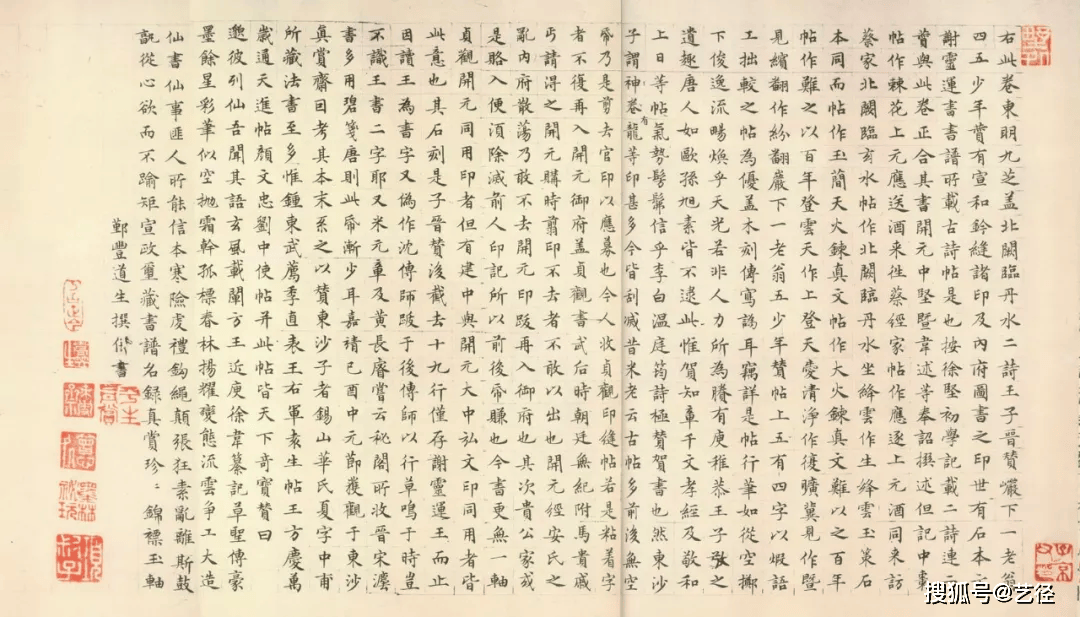 右此卷東明九芝盖北闕臨丹水二詩王子晉贊巖下一老翁
四五少年贊有宣和鈐縫諸印及內府圖書之印世有石本云
謝靈運書書譜所載古詩帖是也按徐堅初學記載二詩連二
贊與此卷正合其書開元中堅暨韋述等奉詔撰述但記中棗
帖作棘花上元應送酒来徃蔡經家帖作應逐上元酒同来訪
蔡家北闕臨玄水帖作北闕臨丹水坐絳雲作生絳雲玉策石
本同而帖作玉簡天火鍊真文帖作大火鍊真文難以之百年
帖作難之以百年登雲天作上登天憂清淨作復曠冀見作暨
見纘翻作紛翻巖下一老翁五少年贊帖上五有四字以蝦語
工拙較之帖為優盖木刻傳寫譌耳竊詳是帖行筆如從空擲
下俊逸流暢煥乎天光若非人力所為勝有庾稚恭王子敬之
遺趣唐人如歐孫旭素皆不逮此惟賀知章千文孝經及敬和
上日等帖氣勢髣髴信乎李白溫庭筠詩極贊賀書也然東沙
子謂神卷有龍等印甚多今皆刮滅昔米老云古帖多前後無空
帋乃是剪去官印以應募也今人收貞觀印縫帖若是粘着字
者不復再入開元御府盖貞觀書武后時朝廷無紀附馬貴戚
丐請得之開元購時剪印不去者不敢以出也開元經安氏之
亂內府散蕩乃敢不去開元印跋再入御府也其次貴公家或
是賂入便須除滅前人印記所以前後帋賺也今書更無一軸
貞觀開元同用印者但有建中與開元大中弘文印同用者皆
此意也其石刻是子晉贊後截去十九行僅存謝靈運王而止
因讀王為書字又偽作沈傳師跋于後傳師以行草鳴于時豈
不識王書二字耶又米元章及黃長睿嘗云秘閣所收晉宋灋
書多用碧箋唐則此帋漸少耳嘉靖己酉中元節獲觀于東沙
真賞齋回考其本末系之以贊東沙子者錫山華氏夏字中甫
所藏法書至多惟鍾東武薦季直表王右軍袁生帖王方慶萬
歲通天進帖顏文忠劉中使帖并此帖皆天下奇寶贊曰
邈彼列仙吾聞其語玄風載闡方王近庾徐韋纂記草聖傳豪
墨餘星彩筆似空拋霜幹孤標春林揚耀變態流雲爭工大造
仙書仙事匪人所能信本寒險虔禮鈎繩顛張狂素亂雖斯鼓
訊從心欲而不踰矩宣政璽藏書譜名錄真賞珍珍錦褾玉軸
鄞豐道生撰并書
搜狐号@艺径